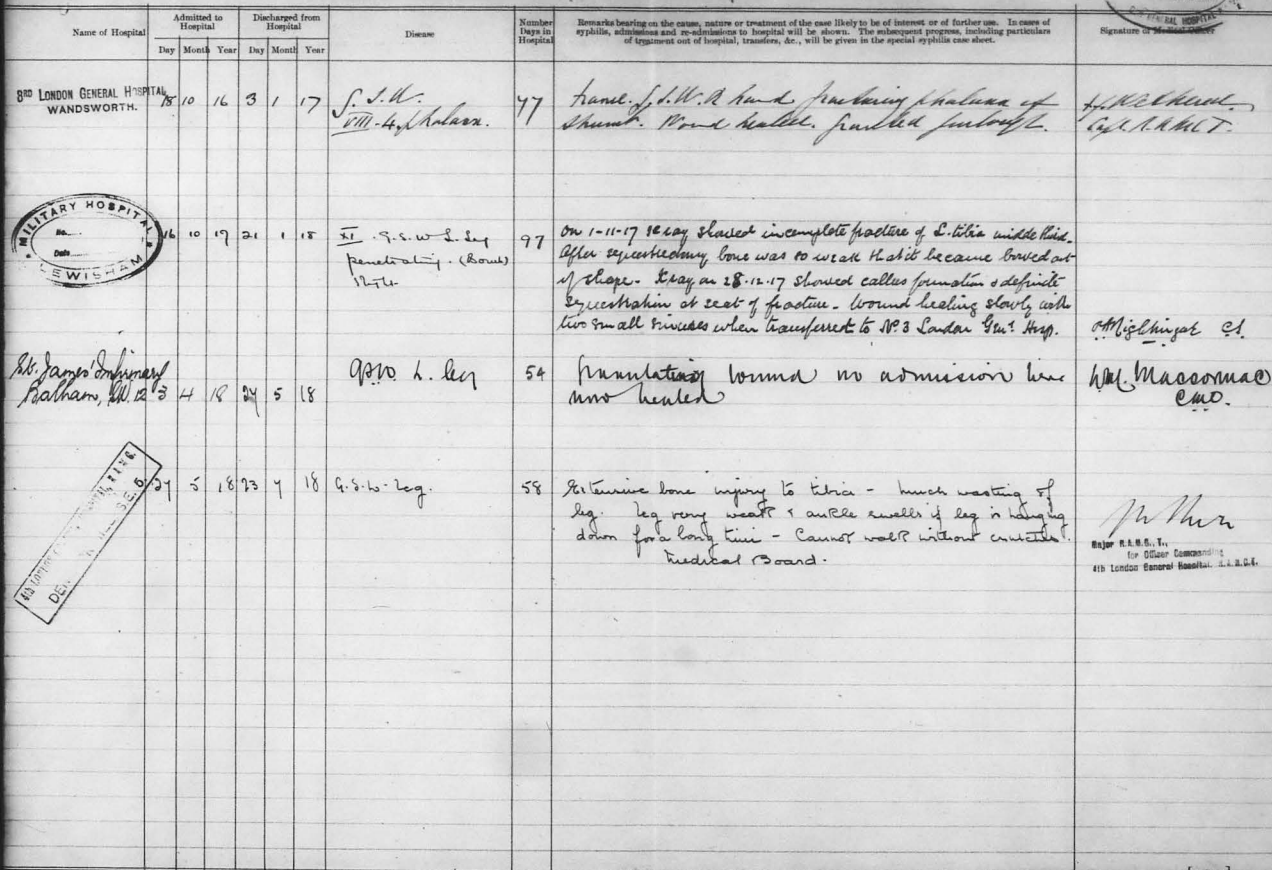 Name of Hospital
Admitted to Hospital
Day Month Year
Discharged from Hospital
Day Month Year
Disease
Number Days in Hospital
Remarks bearing on the cause, nature or treatment of the case likely to be of interest or of further use. In cases of
syphilis, admissions and re-admissions to hospital will be shown. The subsequent progress, including particulars
of treatment out of hospital, transfers, &c., will be given in the special syphilis case sheet.
Signature of Medical Officer
GENERAL HOSPITAL
3RD LONDON GENERAL HOSPITAL,
WANDSWORTH.
18 10 16 3 1 17
VIII - 4. phalanx.
77
hand fracturing phalanx of
thumb. Wound healed. Granted furlough.
Capt. R.A.M.C.T.
MILITARY HOSPITAL
No.
Date
LEWISHAM
16 10 17 21 1 18
XI. G.S.W. L. Leg
penetrating. (Bone)
97
on 1-11-17 Xray showed incomplete fracture of L. tibia middle third.
After sequestrectomy bone was so weak that it became bowed out
of shape. Xray on 28-12-17 showed callus formation & definite
sequestration at seat of fracture. Wound healing slowly with
two small sinuses when transferred to No. 3 London Genl. Hosp.
St. James' Infirmary
Balham, S.W. 12
3 4 18 27 5 18
GSW L. leg
54
Granulating wound on admission here
now healed
Wm. MacCormac
CMO.
27 5 18 23 7 18
G.S.W. Leg.
58
Extensive bone injury to tibia - much wasting of
leg. Leg very weak & ankle swells if leg is hanging
down for a long time - Cannot walk without crutches.
Medical Board.
Major R.A.M.C., T.,
for Officer Commanding
4th London General Hospital, R.A.M.C.T.